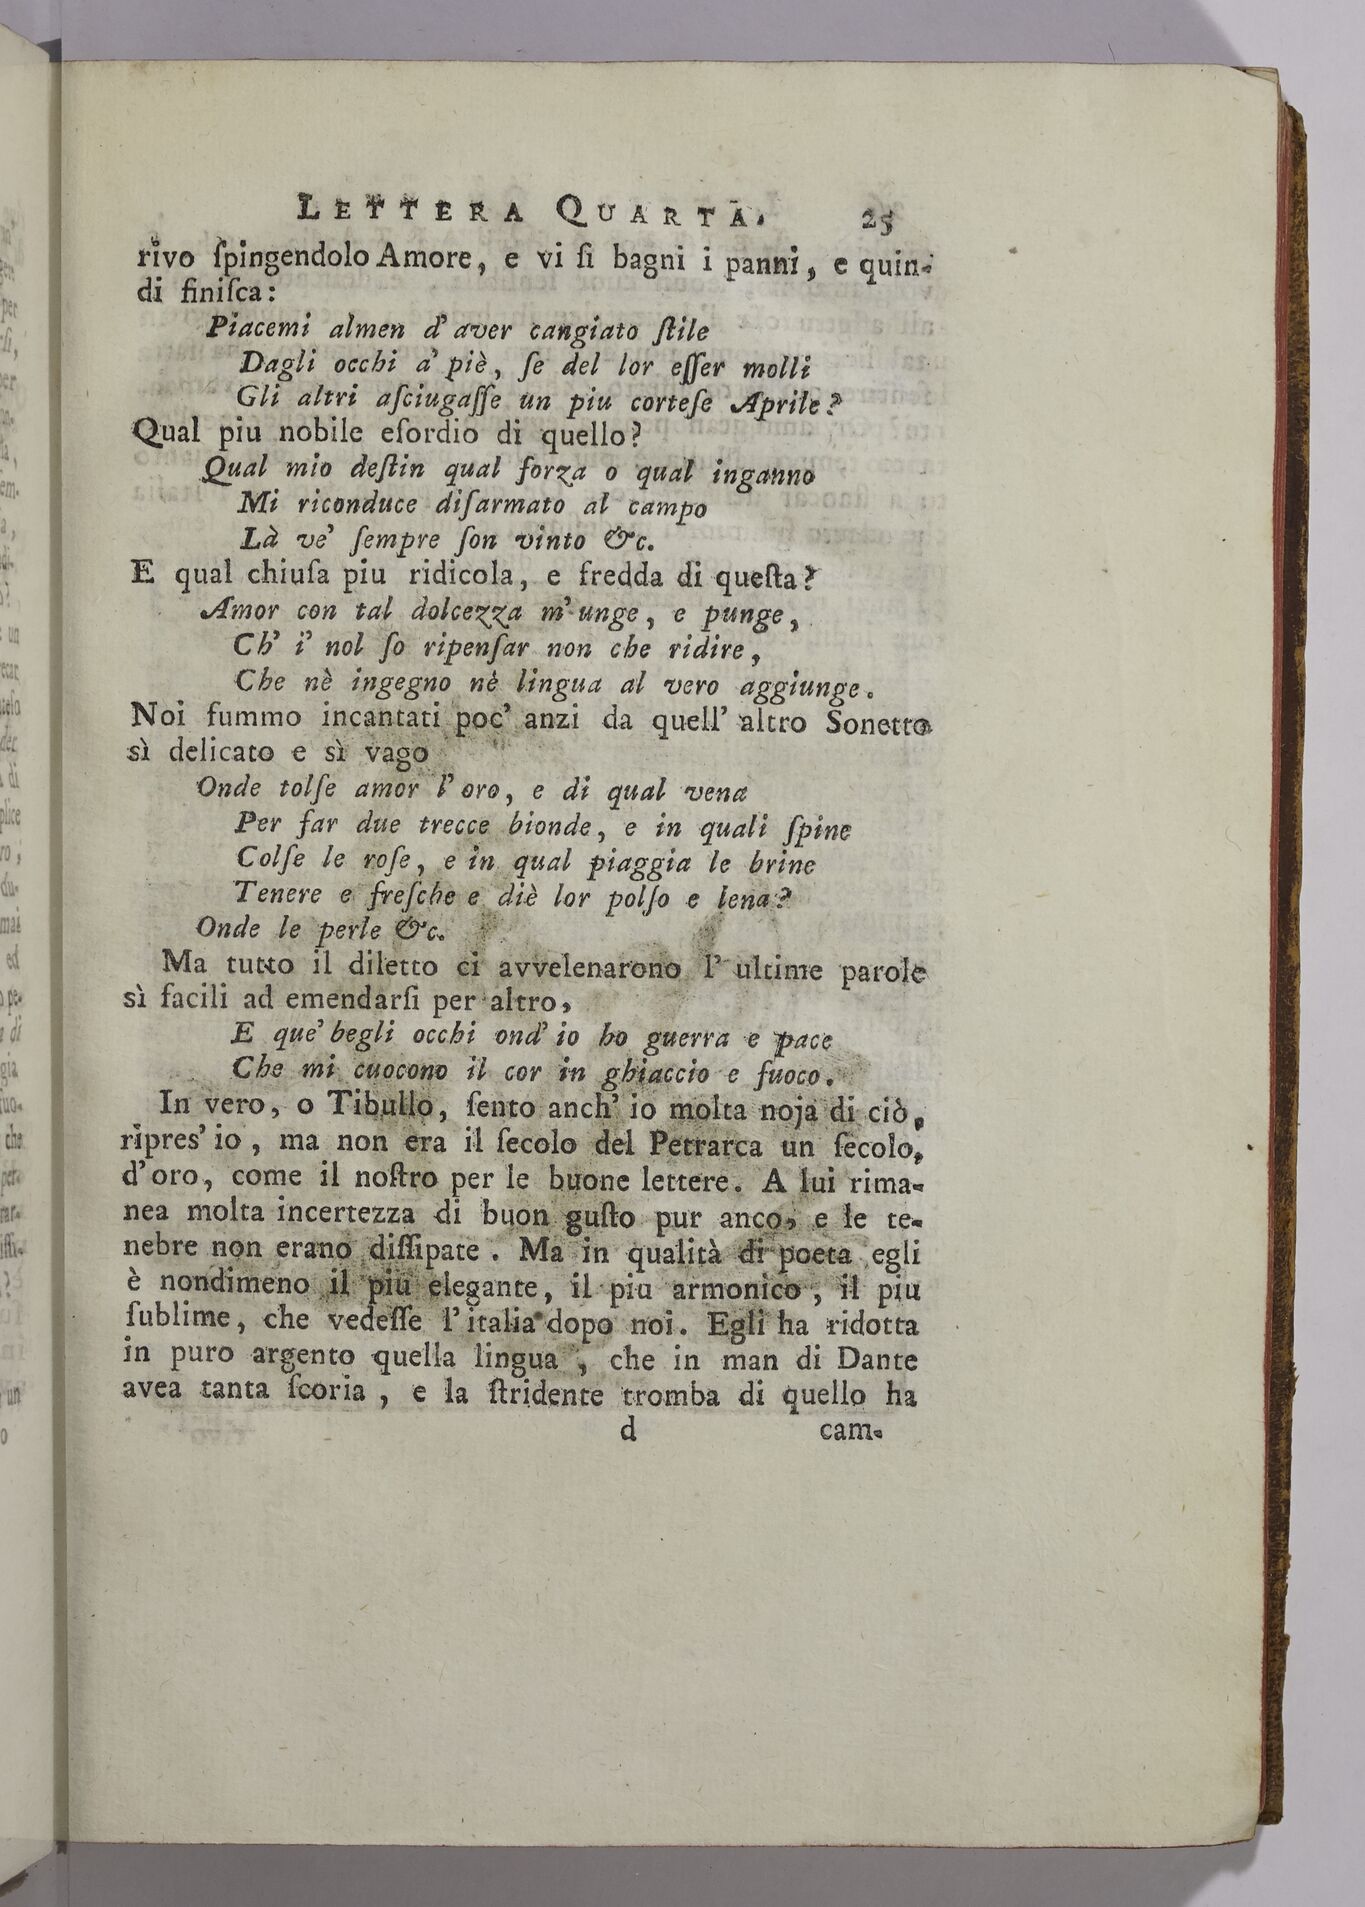 LETTERA QUARTA. 25
rivo ſpingendolo Amore, e vi ſi bagni i panni, e quin-
di finiſca:
Piacemi almen d' aver cangiato ſtile
Dagli occhi a' piè, ſe del lor eſſer molli
Gli altri aſciugaſſe un piu corteſe Aprile?
Qual piu nobile eſordio di quello?
Qual mio deſtin qual forza o qual inganno
Mi riconduce diſarmato al campo
Là ve' ſempre ſon vinto &c.
E qual chiuſa piu ridicola, e fredda di queſta?
Amor con tal dolcezza m' unge, e punge,
Ch' i' nol ſo ripenſar non che ridire,
Che nè ingegno nè lingua al vero aggiunge.
Noi fummo incantati poc' anzi da quell' altro Sonetto
sì delicato e sì vago
Onde tolſe amor l' oro, e di qual vena
Per far due trecce bionde, e in quali ſpine
Colſe le roſe, e in qual piaggia le brine
Tenere e freſche e diè lor polſo e lena?
Onde le perle &c.
Ma tutto il diletto ci avvelenarono l' ultime parole
sì facili ad emendarſi per altro,
E que' begli occhi ond' io ho guerra e pace
Che mi cuocono il cor in ghiaccio e fuoco.
In vero, o Tibullo, ſento anch' io molta noja di ciò,
ripres' io, ma non era il ſecolo del Petrarca un ſecolo,
d'oro, come il noſtro per le buone lettere. A lui rima-
nea molta incertezza di buon guſto pur anco, e le te-
nebre non erano diſſipate. Ma in qualità di poeta egli
è nondimeno il piu elegante, il piu armonico, il piu
ſublime, che vedeſſe l' italia dopo noi. Egli ha ridotta
in puro argento quella lingua, che in man di Dante
avea tanta ſcoria, e la ſtridente tromba di quello ha
d cam-